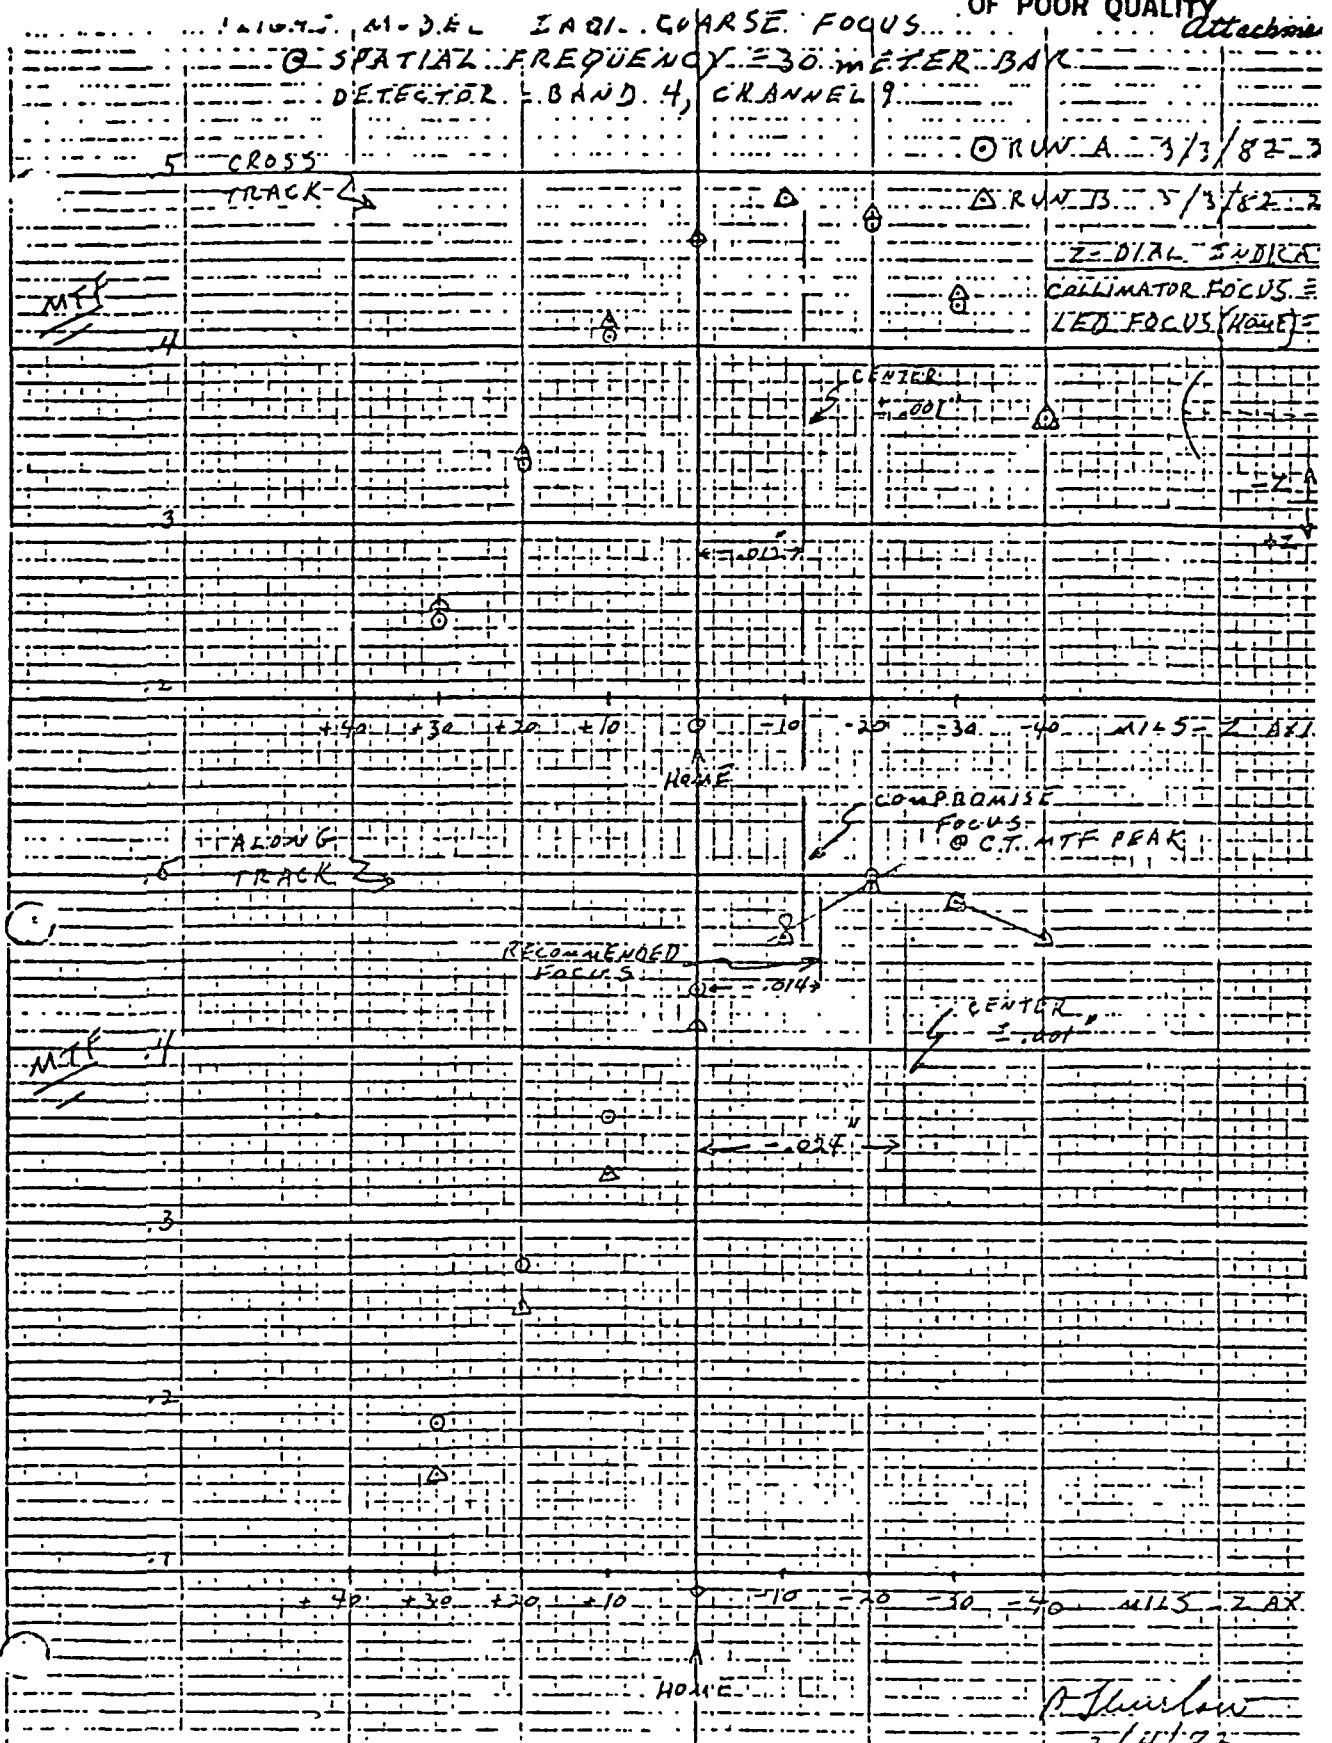 OF POOR QUALITY
MODEL COARSE FOCUS
@ SPATIAL FREQUENCY = 30 METER BAR
DETECTOR = BAND 4, CHANNEL 9
⊙ RUN A 3/3/82
△ RUN B 3/3/82
.5 CROSS
TRACK
Z = DIAL
COLLIMATOR FOCUS =
LED FOCUS (HOME) =
MTF
.4
CENTER
± .001"
-Z
.3
-.012"
+Z
.2
+40 +30 +20 +10 0 -10 -20 -30 -40 MILS - Z
HOME
COMPROMISE
FOCUS
@ C.T. MTF PEAK
ALONG
TRACK
RECOMMENDED
FOCUS
-.014
CENTER
± .001"
MTF
.4
-.024"
.3
.2
.1
+40 +30 +20 +10 0 -10 -20 -30 -40 MILS - Z
HOME